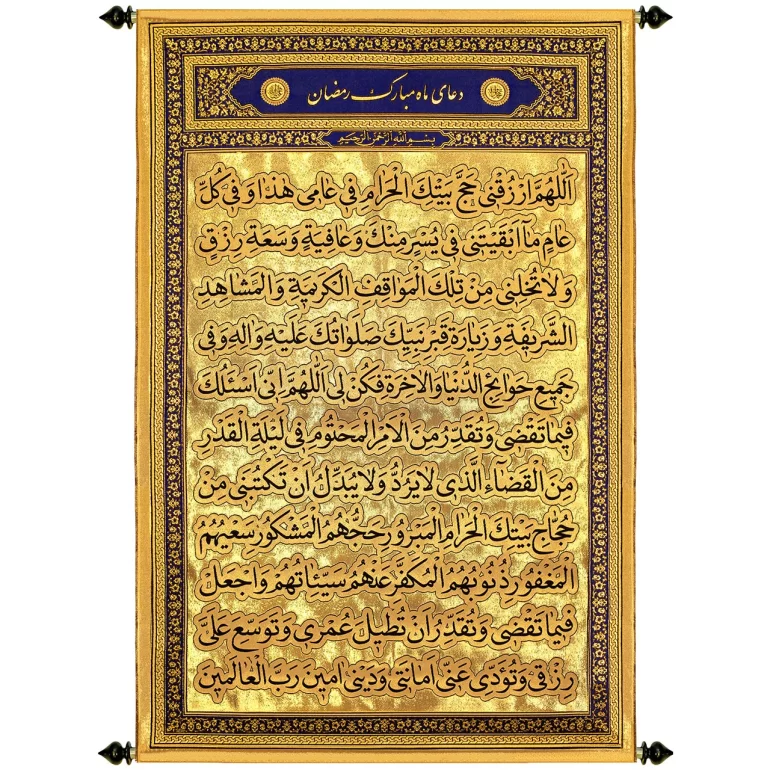 دعای ماه مبارک رمضان
بسم الله الرحمن الرحیم
اَللّٰهُمَّ ارْزُقْنی حَجَّ بَیْتِكَ الْحَرامِ فی عامی هٰذا وَ فی كُلِّ
عامٍ ما اَبْقَیْتَنی فی یُسْرٍ مِنْكَ وَ عافِیَةٍ وَ سَعَةِ رِزْقٍ
وَ لا تُخْلِنی مِنْ تِلْكَ الْمَواقِفِ الْكَریمَةِ وَ الْمَشاهِدِ
الشَّریفَةِ وَ زِیارَةِ قَبْرِ نَبِیِّكَ صَلَواتُكَ عَلَیْهِ وَ الِهِ وَ فی
جَمیعِ حَوائِجِ الدُّنْیا وَ الْاخِرَةِ فَكُنْ لی اَللّٰهُمَّ اِنّی اَسْئَلُكَ
فیما تَقْضی وَ تُقَدِّرُ مِنَ الْاَمْرِ الْمَحْتُومِ فی لَیْلَةِ الْقَدْرِ
مِنَ الْقَضاءِ الَّذی لا یُرَدُّ وَ لا یُبَدَّلُ اَنْ تَكْتُبَنی مِنْ
حُجّاجِ بَیْتِكَ الْحَرامِ الْمَبْرُورِ حَجُّهُمْ الْمَشْكُورِ سَعْیُهُمْ
الْمَغْفُورِ ذُنُوبُهُمْ الْمُكَفَّرِ عَنْهُمْ سَیِّئاتُهُمْ وَ اجْعَلْ
فیما تَقْضی وَ تُقَدِّرُ اَنْ تُطیلَ عُمْری وَ تُوَسِّعَ عَلَیَّ
رِزْقی وَ تُؤَدِّیَ عَنّی اَمانَتی وَ دَیْنی امینَ رَبَّ الْعالَمینَ